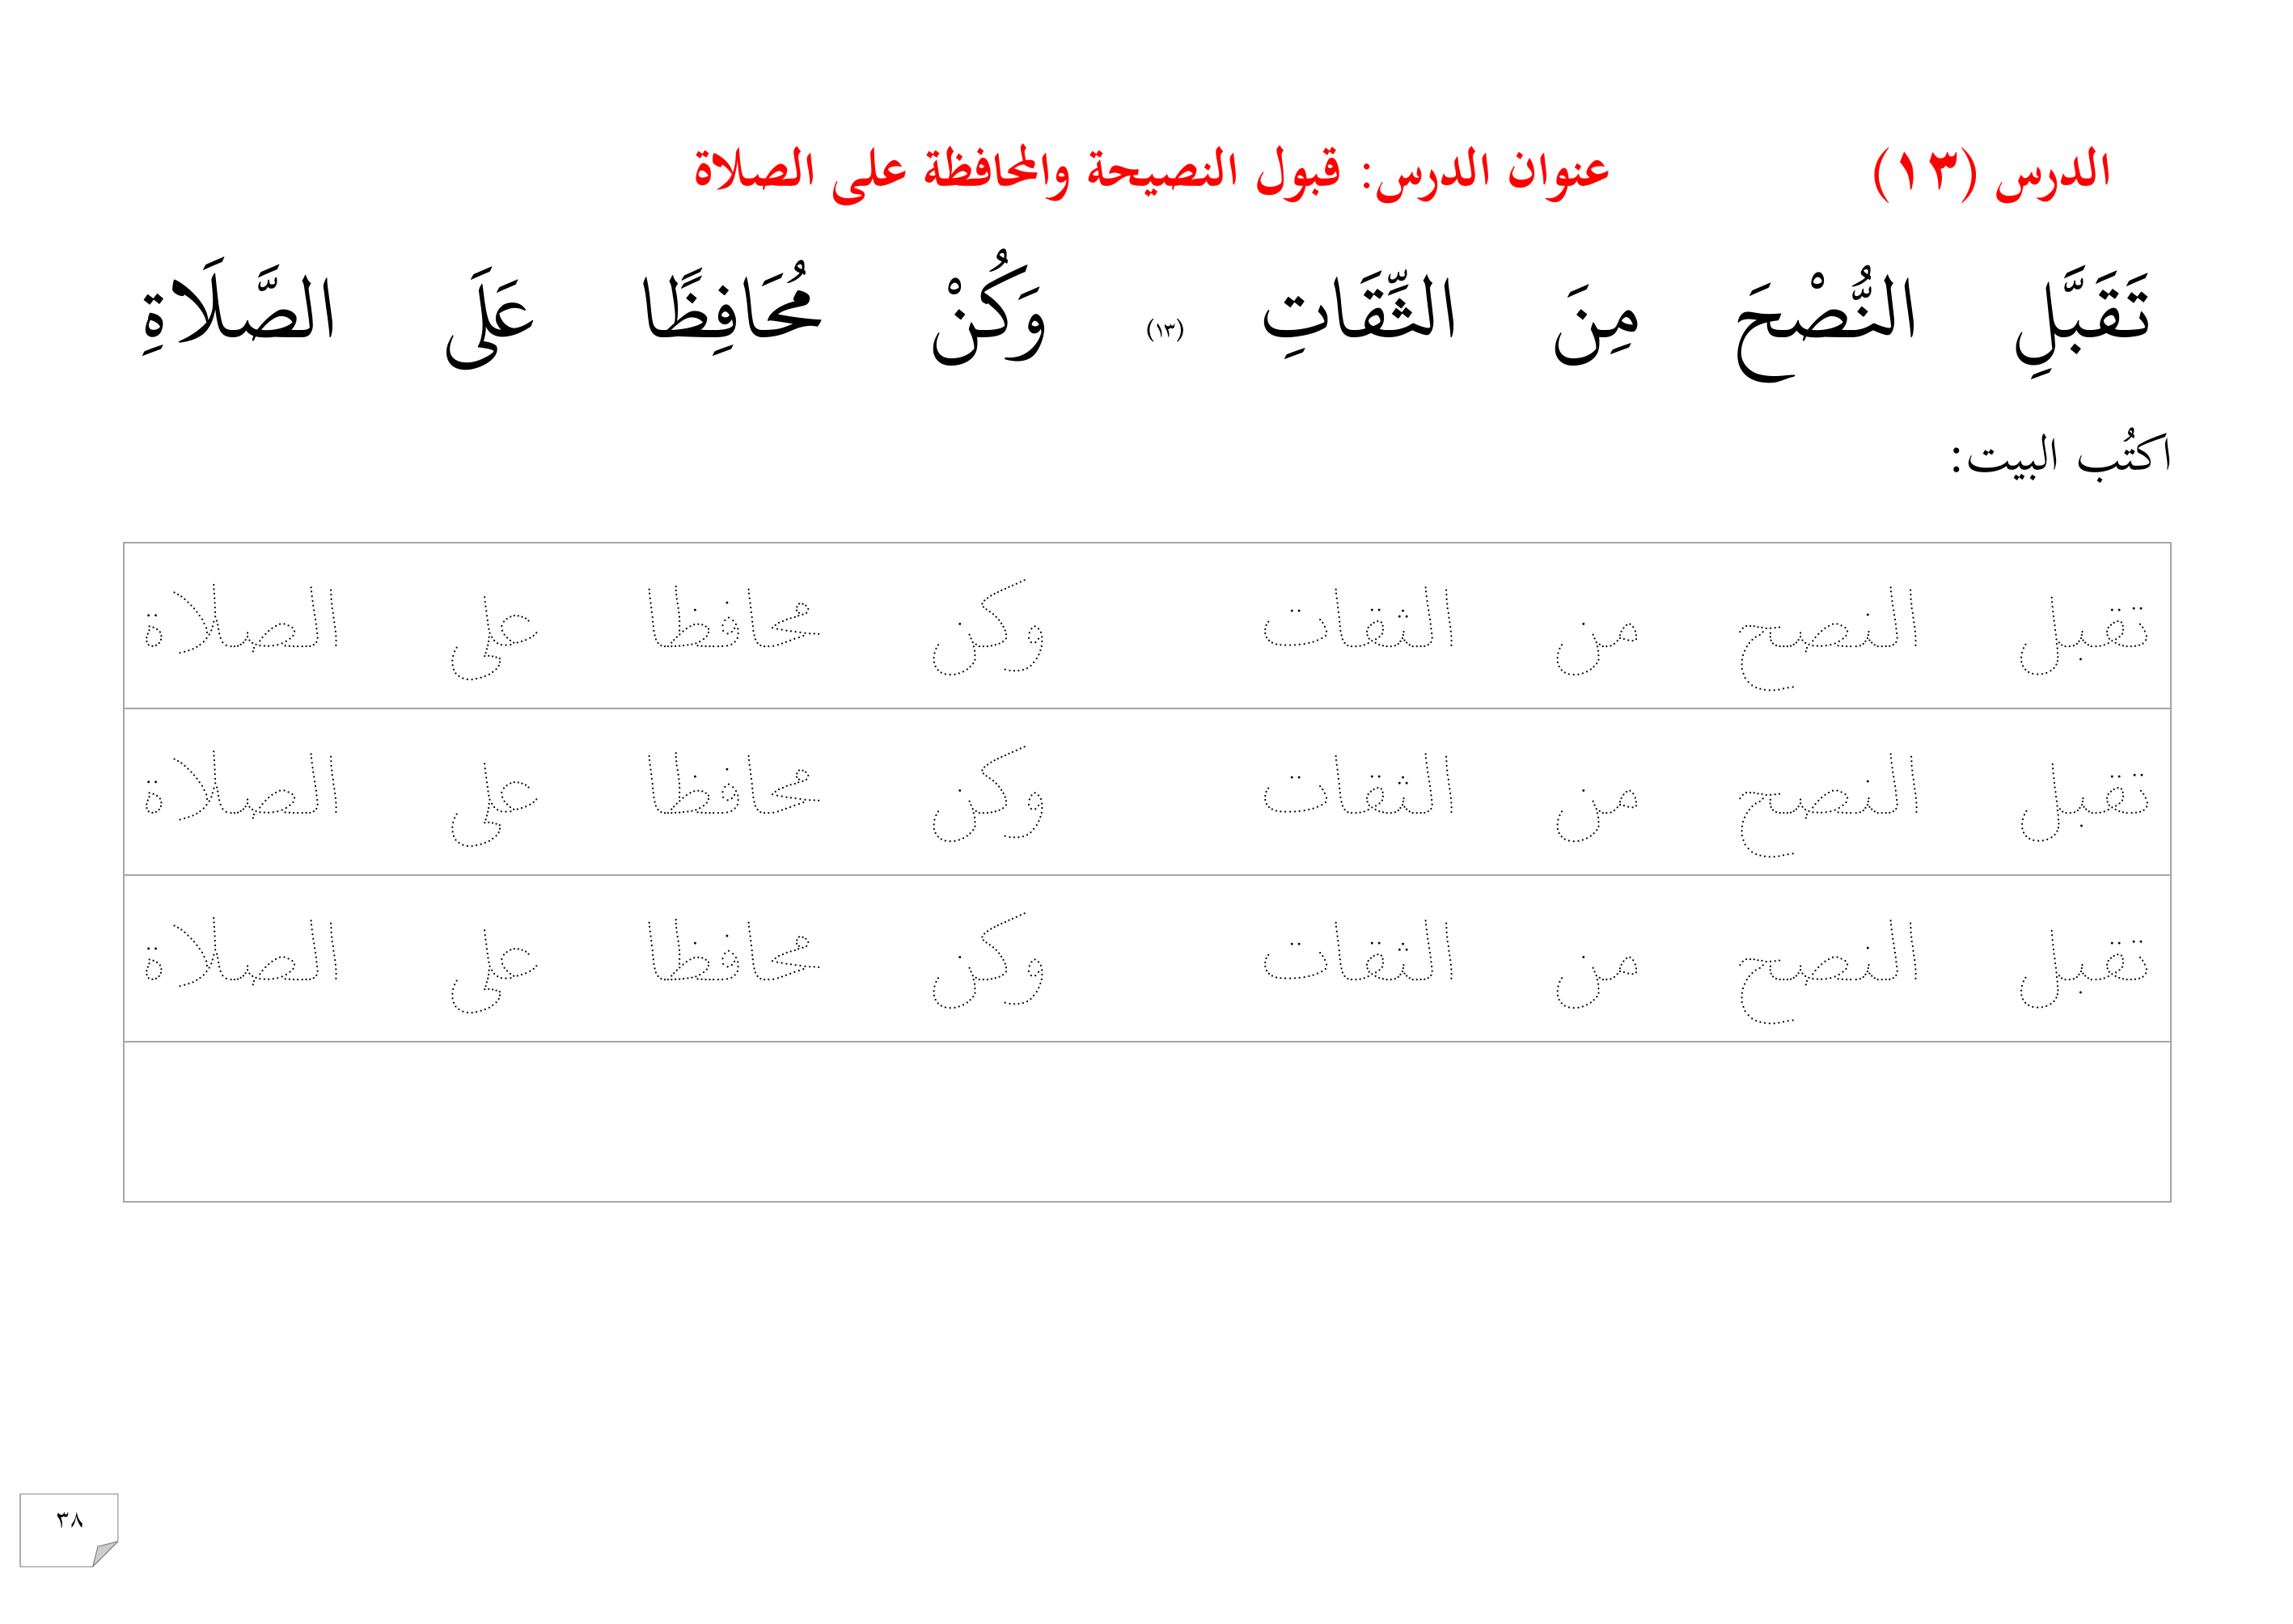 الدرس (١٣) عنوان الدرس: قبول النصيحة والمحافظة على الصلاة
تَقَبَّلِ النُّصْحَ مِنَ الثِّقَاتِ (١٣) وَكُنْ مُحَافِظًا عَلَى الصَّلَاةِ
اكتُب البيت:
تقبل النصح من الثقات وكن محافظا على الصلاة
تقبل النصح من الثقات وكن محافظا على الصلاة
تقبل النصح من الثقات وكن محافظا على الصلاة
٣٨